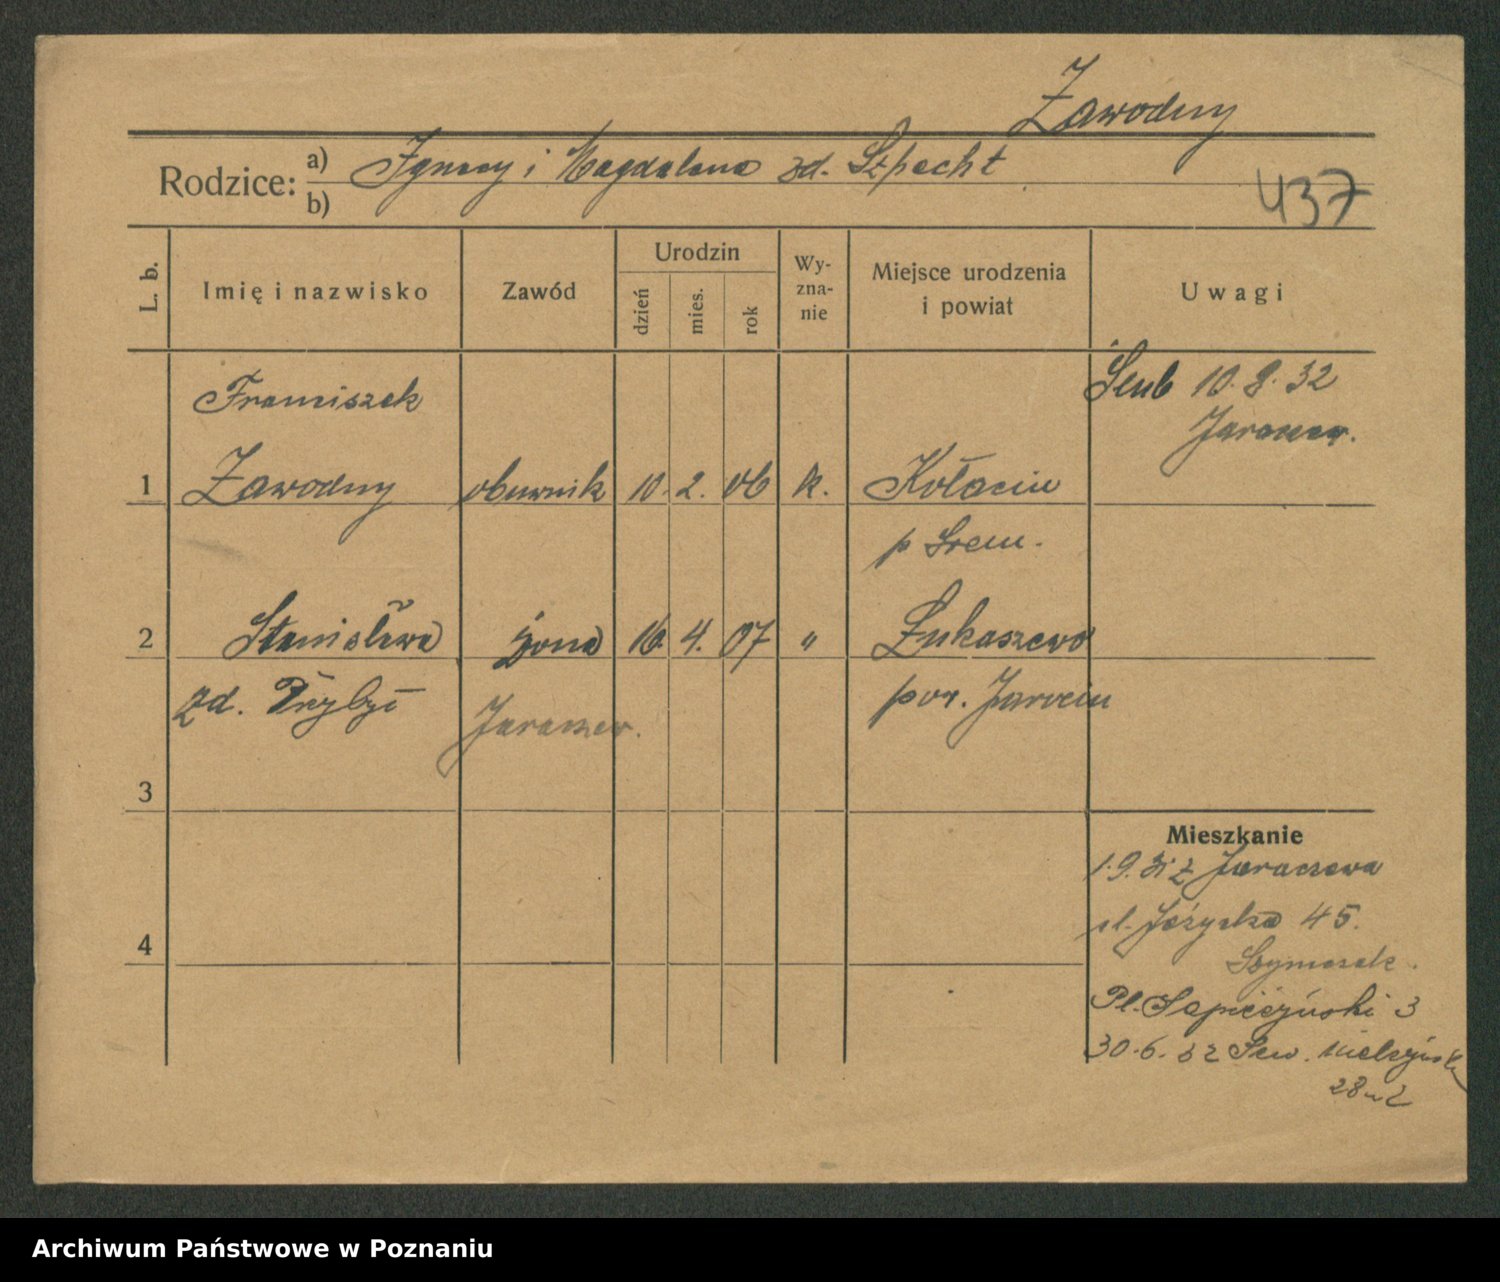 Zawodny
Rodzice: a) Ignacy i Magdalena zd. Szpecht
b)
437
L. b.
Imię i nazwisko
Zawód
Urodzin
dzień
mies.
rok
Wy-
zna-
nie
Miejsce urodzenia
i powiat
Uwagi
Franciszek
Ślub 10. 8. 32
Jaraczew.
1 Zawodny obuwnik 10. 2. 06 k. Kołacin
p Śrem.
2 Stanisława żona 16. 4. 07 " Łukaszewo
zd. Przybył Jaraczew. pow. Jarocin
3
4
Mieszkanie
1.9.31 z Jaraczewa
ul. Jeżycka 45.
Szymczak.
Pl. Sapieżyński 3
30.6.32 Sew. Mielżyńsk
28 m 2
Archiwum Państwowe w Poznaniu